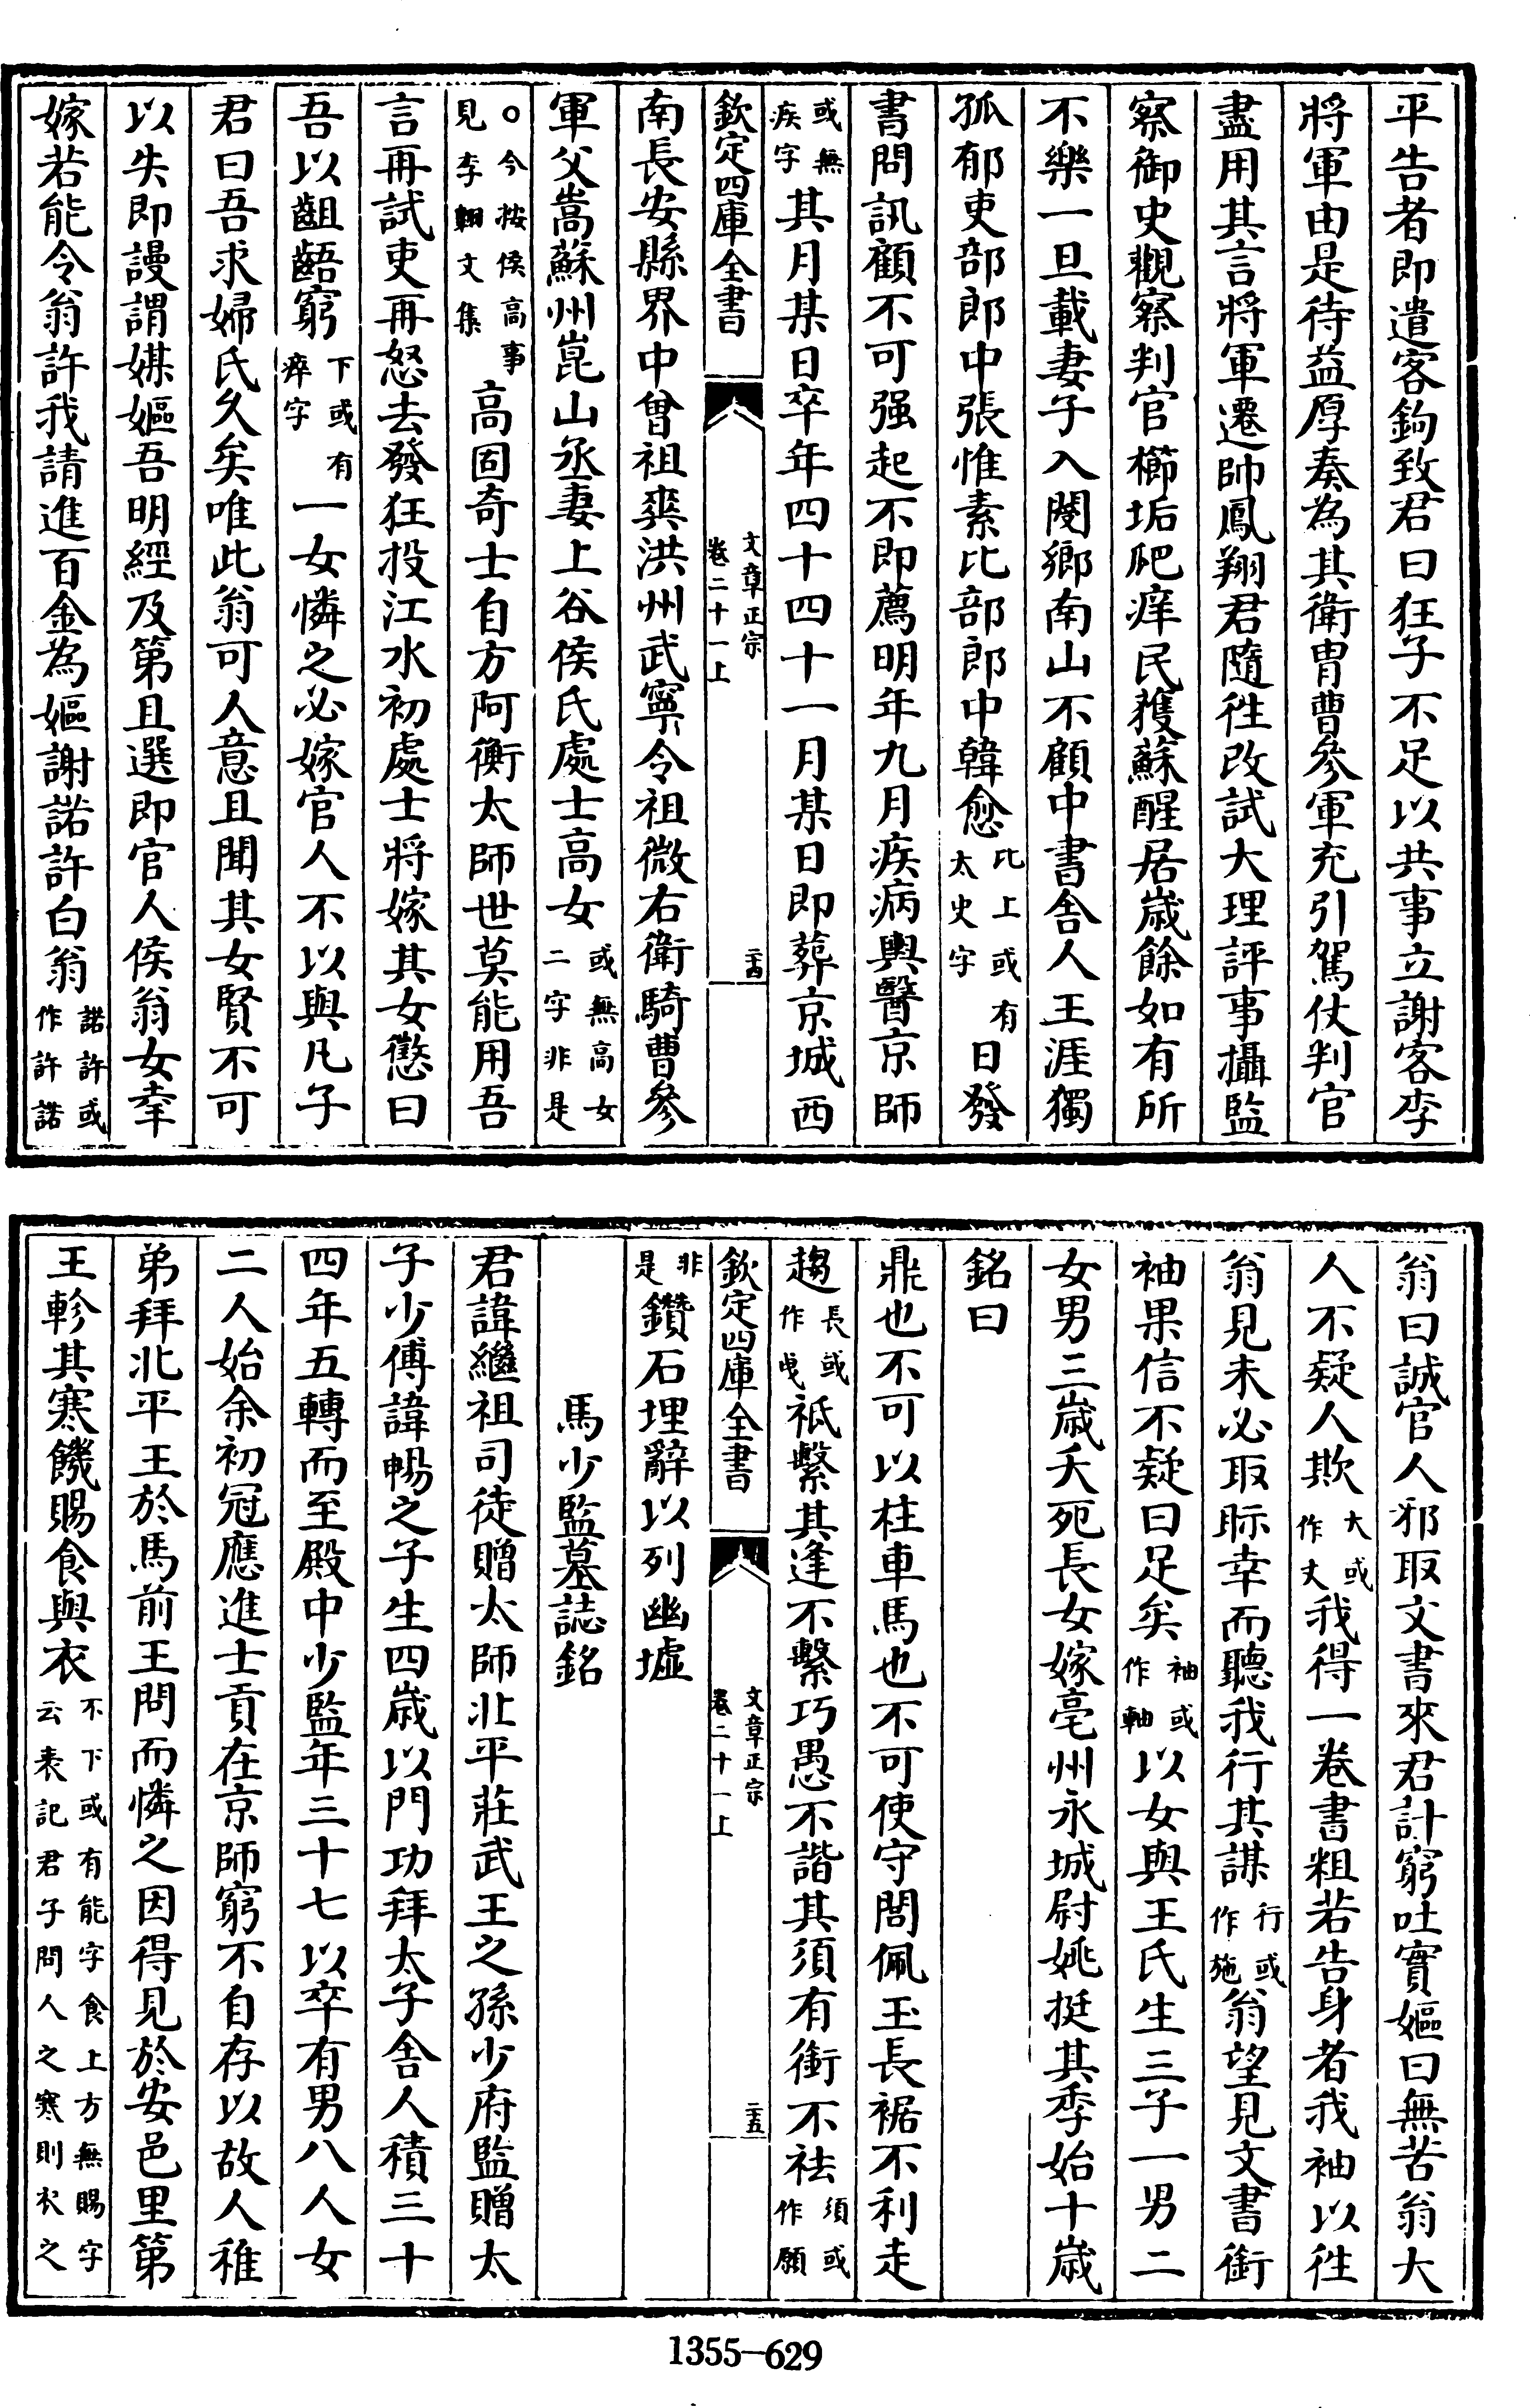 平告者即遣客鉤致君曰狂子不足以共事立謝客李
將軍由是待益厚奏為其衛胄曹參軍充引駕仗判官
盡用其言將軍遷帥鳳翔君隨徃改試大理評事攝監
察御史觀察判官櫛垢爬痒民獲蘇醒居歲餘如有所
不樂一旦載妻子入閿鄉南山不顧中書舍人王涯獨
孤郁吏部郎中張惟素比部郎中韓愈比上或有太史字日發
書問訊顧不可强起不即薦明年九月疾病輿醫京師
或無疾字其月某日卒年四十四十一月某日即葬京城西
欽定四庫全書 文章正宗 卷二十一上 二十四
南長安縣界中曾祖爽洪州武寧令祖微右衛騎曹參
軍父嵩蘇州崑山丞妻上谷侯氏處士高女或無高女二字非是
○今按侯高事見李翱文集高固奇士自方阿衡太師世莫能用吾
言再試吏再怒去發狂投江水初處士將嫁其女懲曰
吾以齟齬窮下或有瘁字一女憐之必嫁官人不以與凡子
君曰吾求婦氏久矣唯此翁可人意且聞其女賢不可
以失即謾謂媒嫗吾明經及第且選即官人侯翁女幸
嫁若能令翁許我請進百金為嫗謝諾許白翁諾許或作許諾
翁曰誠官人邪取文書來君計窮吐實嫗曰無苦翁大
人不疑人欺大或作丈我得一卷書粗若告身者我袖以徃
翁見未必取眎幸而聽我行其謀行或作施翁望見文書銜
袖果信不疑曰足矣袖或作軸以女與王氏生三子一男二
女男三歲夭死長女嫁亳州永城尉姚挺其季始十歲
銘曰
鼎也不可以柱車馬也不可使守閭佩玉長裾不利走
趨長或作曳祇繫其逢不繫巧愚不諧其須有銜不祛須或作願
欽定四庫全書 文章正宗 卷二十一上 二十五
非是鑽石埋辭以列幽墟
馬少監墓誌銘
君諱繼祖司徒贈太師北平莊武王之孫少府監贈太
子少傅諱暢之子生四歲以門功拜太子舍人積三十
四年五轉而至殿中少監年三十七以卒有男八人女
二人始余初冠應進士貢在京師窮不自存以故人稚
弟拜北平王於馬前王問而憐之因得見於安邑里第
王軫其寒饑賜食與衣不下或有能字食上方無賜字云表記君子問人之寒則衣之
1355-629